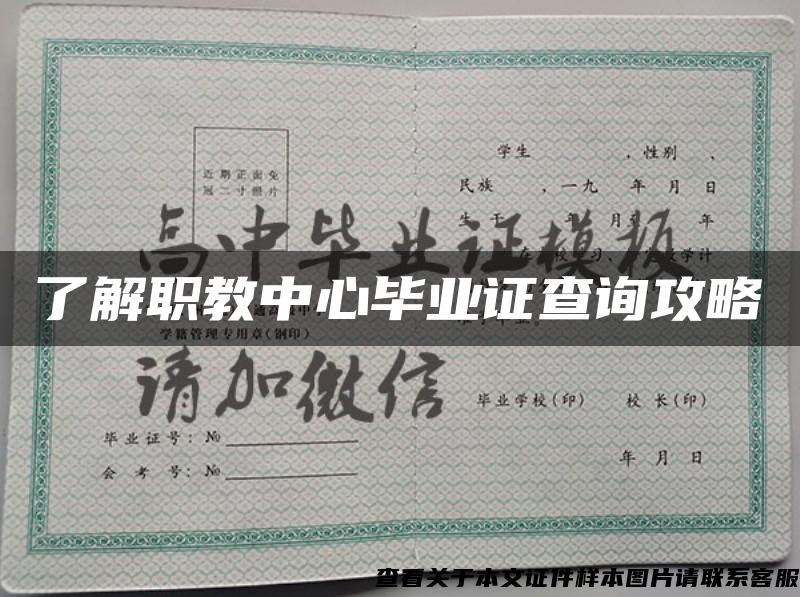 近期正面免
冠二寸照片
学籍管理专用章(钢印)
毕业证号：№
会考号：№
学生 ，性别 、
民族 ，一九 年 月 日
生于 年 月至 年
毕业学校(印) 校长(印)
年 月 日
高中毕业证模板
请加微信
了解职教中心毕业证查询攻略
查看关于本文证件样本图片请联系客服